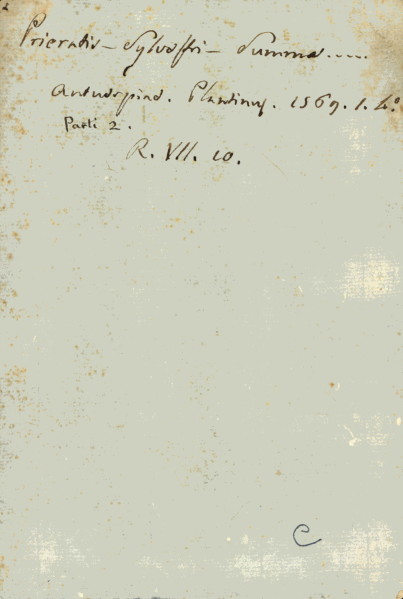 Prieratis – Sylvestri – Summa.....
Antuerpiae. Plantinus. 1569. 1. 4º
Parti 2.
R. VII. 10.
C